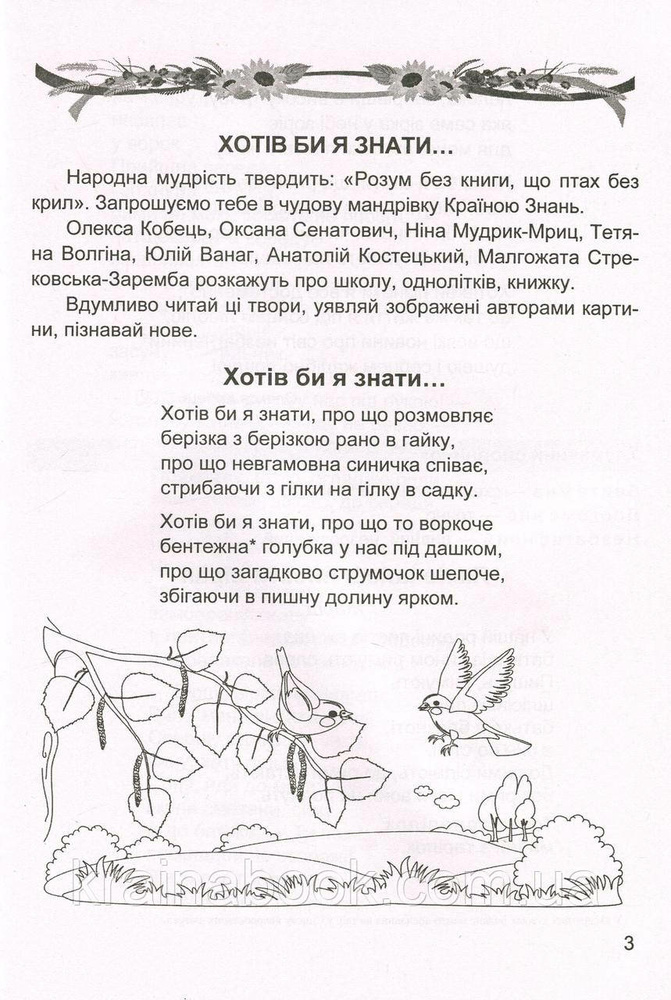 ХОТІВ БИ Я ЗНАТИ...
Народна мудрість твердить: «Розум без книги, що птах без
крил». Запрошуємо тебе в чудову мандрівку Країною Знань.
Олекса Кобець, Оксана Сенатович, Ніна Мудрик-Мриц, Тетя-
на Волгіна, Юлій Ванаг, Анатолій Костецький, Малгожата Стре-
ковська-Заремба розкажуть про школу, однолітків, книжку.
Вдумливо читай ці твори, уявляй зображені авторами карти-
ни, пізнавай нове.
Хотів би я знати...
Хотів би я знати, про що розмовляє
берізка з берізкою рано в гайку,
про що невгамовна синичка співає,
стрибаючи з гілки на гілку в садку.
Хотів би я знати, про що то воркоче
бентежна* голубка у нас під дашком,
про що загадково струмочок шепоче,
збігаючи в пишну долину ярком.
krainabook.com.ua
3